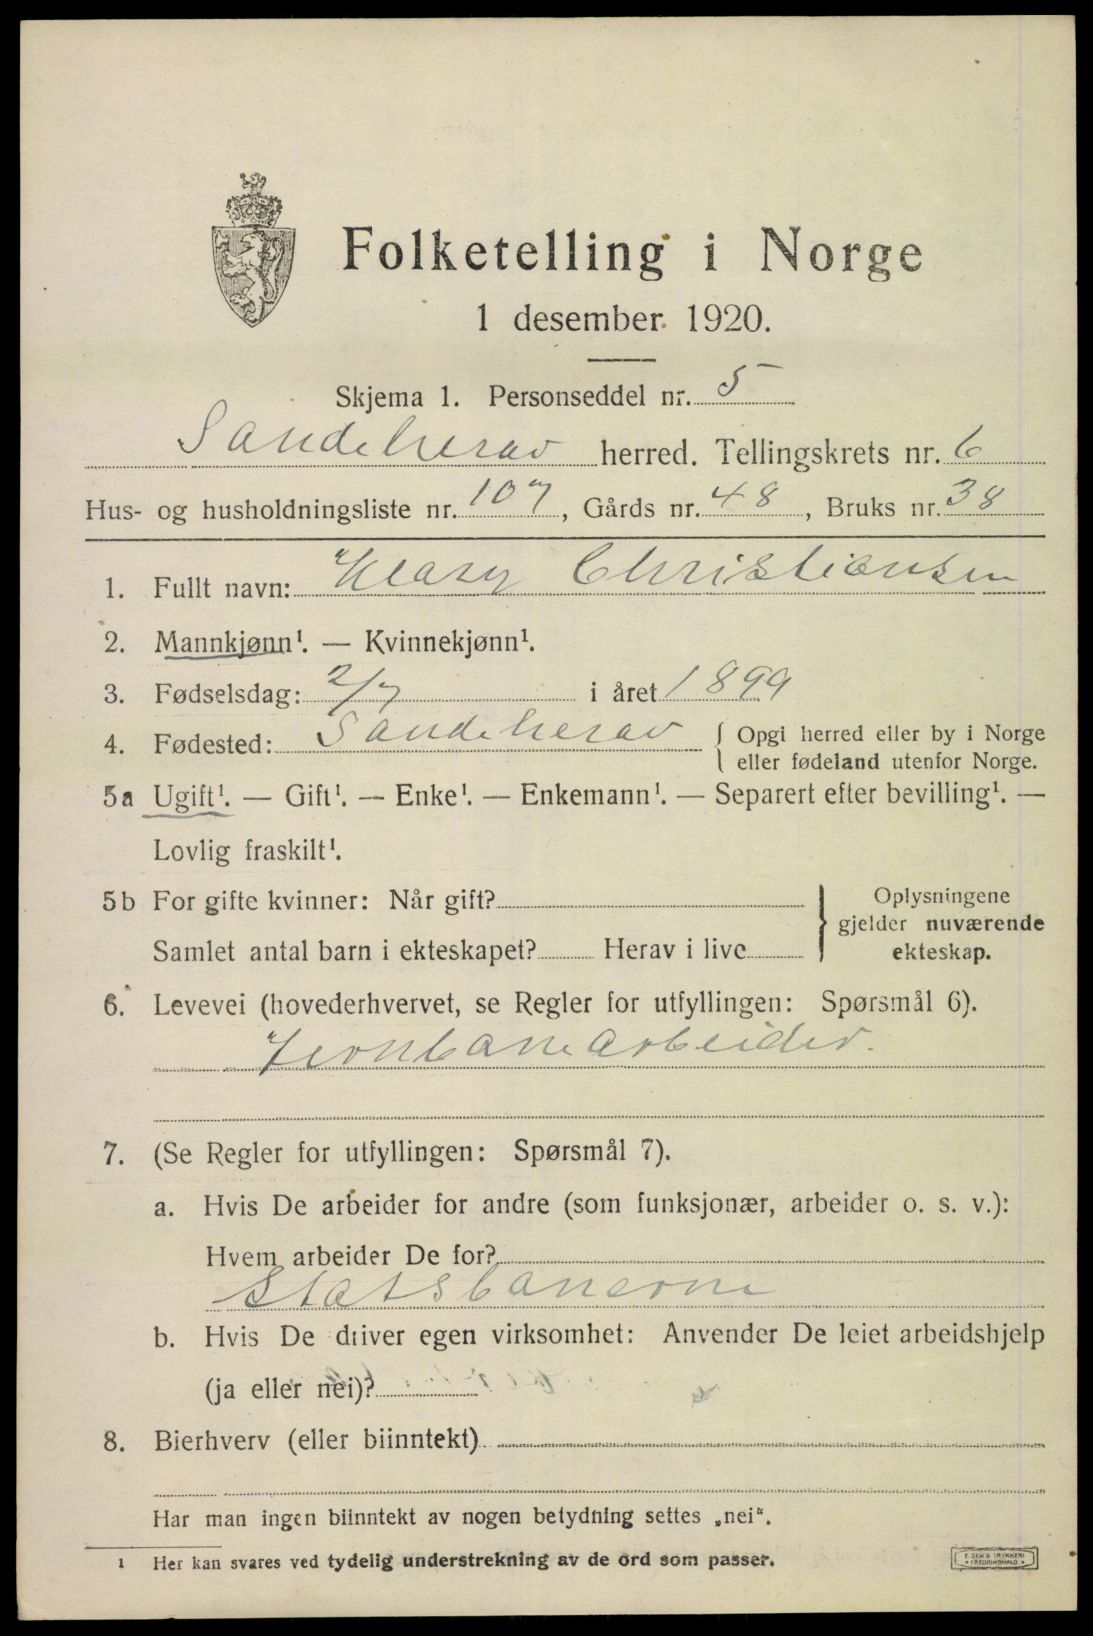 Folketelling i Norge
1 desember 1920.
Skjema 1. Personseddel nr. 5
Sandeherav herred. Tellingskrets nr. 6
Hus- og husholdningsliste nr. 107, Gårds nr. 48, Bruks nr. 38
1. Fullt navn: Christiansen
2. Mannkjønn¹. — Kvinnekjønn¹.
3. Fødselsdag: 2/7 i året 1899
4. Fødested: Sandeherav { Opgi herred eller by i Norge
eller fødeland utenfor Norge.
5a Ugift¹. — Gift¹. — Enke¹. — Enkemann¹. — Separert efter bevilling¹. —
Lovlig fraskilt¹.
5b For gifte kvinner: Når gift?
Samlet antal barn i ekteskapet? Herav i live
} Oplysningene
gjelder nuværende
ekteskap.
6. Levevei (hovederhvervet, se Regler for utfyllingen: Spørsmål 6).
Jernbanearbeider.
7. (Se Regler for utfyllingen: Spørsmål 7).
a. Hvis De arbeider for andre (som funksjonær, arbeider o. s. v.):
Hvem arbeider De for?
Statsbanerne
b. Hvis De driver egen virksomhet: Anvender De leiet arbeidshjelp
(ja eller nei)?
8. Bierhverv (eller biinntekt)
Har man ingen biinntekt av nogen betydning settes „nei“.
¹ Her kan svares ved tydelig understrekning av de ord som passer.
E. SEM'S TRYKKERI
FREDRIKSHALD